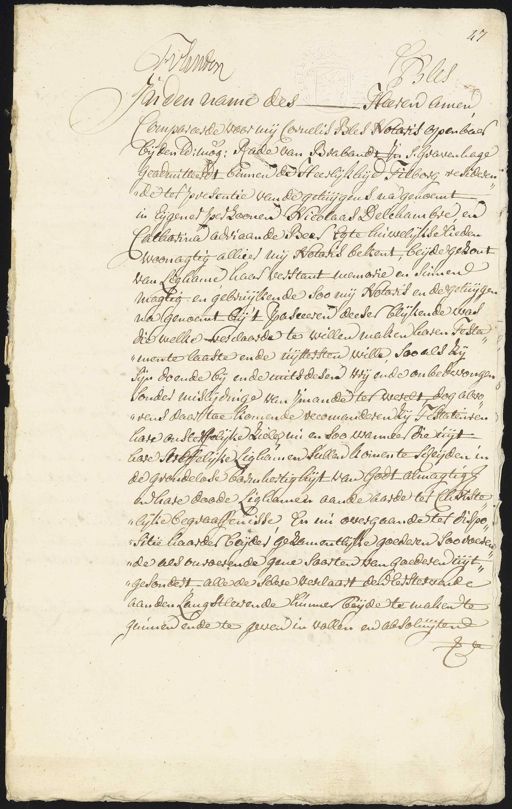 47
Bles
In den name des Heeren amen
Compareerde voor mij Cornelis Bles Notaris openbaer
bij den Ed: mog: Rade van Brabandt in S. Gravenhage
geadmitteert binnen de Heerlijkheijt Tilborg resideren„
„de ter presentie van de getuijgens na genoemt
in Eijgene persoonen Nicolaas Delchambre, en
Catharina adriaande Bees Egte huwelijkse lieden
woonagtig alhier mij Notaris bekent, beijde gesont
van Lighame haer verstant memorie en sinnen
magtig en gebruijkende soo mij Notaris en de getuijgen
na genoemt bij 't passeeren deeser bleijkende was
die welke verclaarde te willen maken haren Testa„
„mente laaste ende uijtterste wille, soo als sij
sijn doende bij ende mits desen vrij ende onbedwongen
sonder misleijdinge van imande ter werelt, dog alvo„
„rens daar toe komende recomanderen sij Testateuren
hare onsterffelijke Zielen nu en soo wanneer die uijt
hare sterffelijke Lighamen sullen komen te scheijden in
de grondelose barmhertigheijt van Godt almagtig
en hare doode Lighamen aan de aarde ter Christe„
„lijke begraaffenisse. En nu overgaande tot dispo„
„sitie haarder beijder gesamentlijke goederen soo roeren„
„de als onroerende geene soorten van goederen uijt„
„gesondert alle de selve verlaast de Eerststervende
aan den Langstlevende hunner beijde te maken te
gunnen ende te geven in vollen en absoluijten